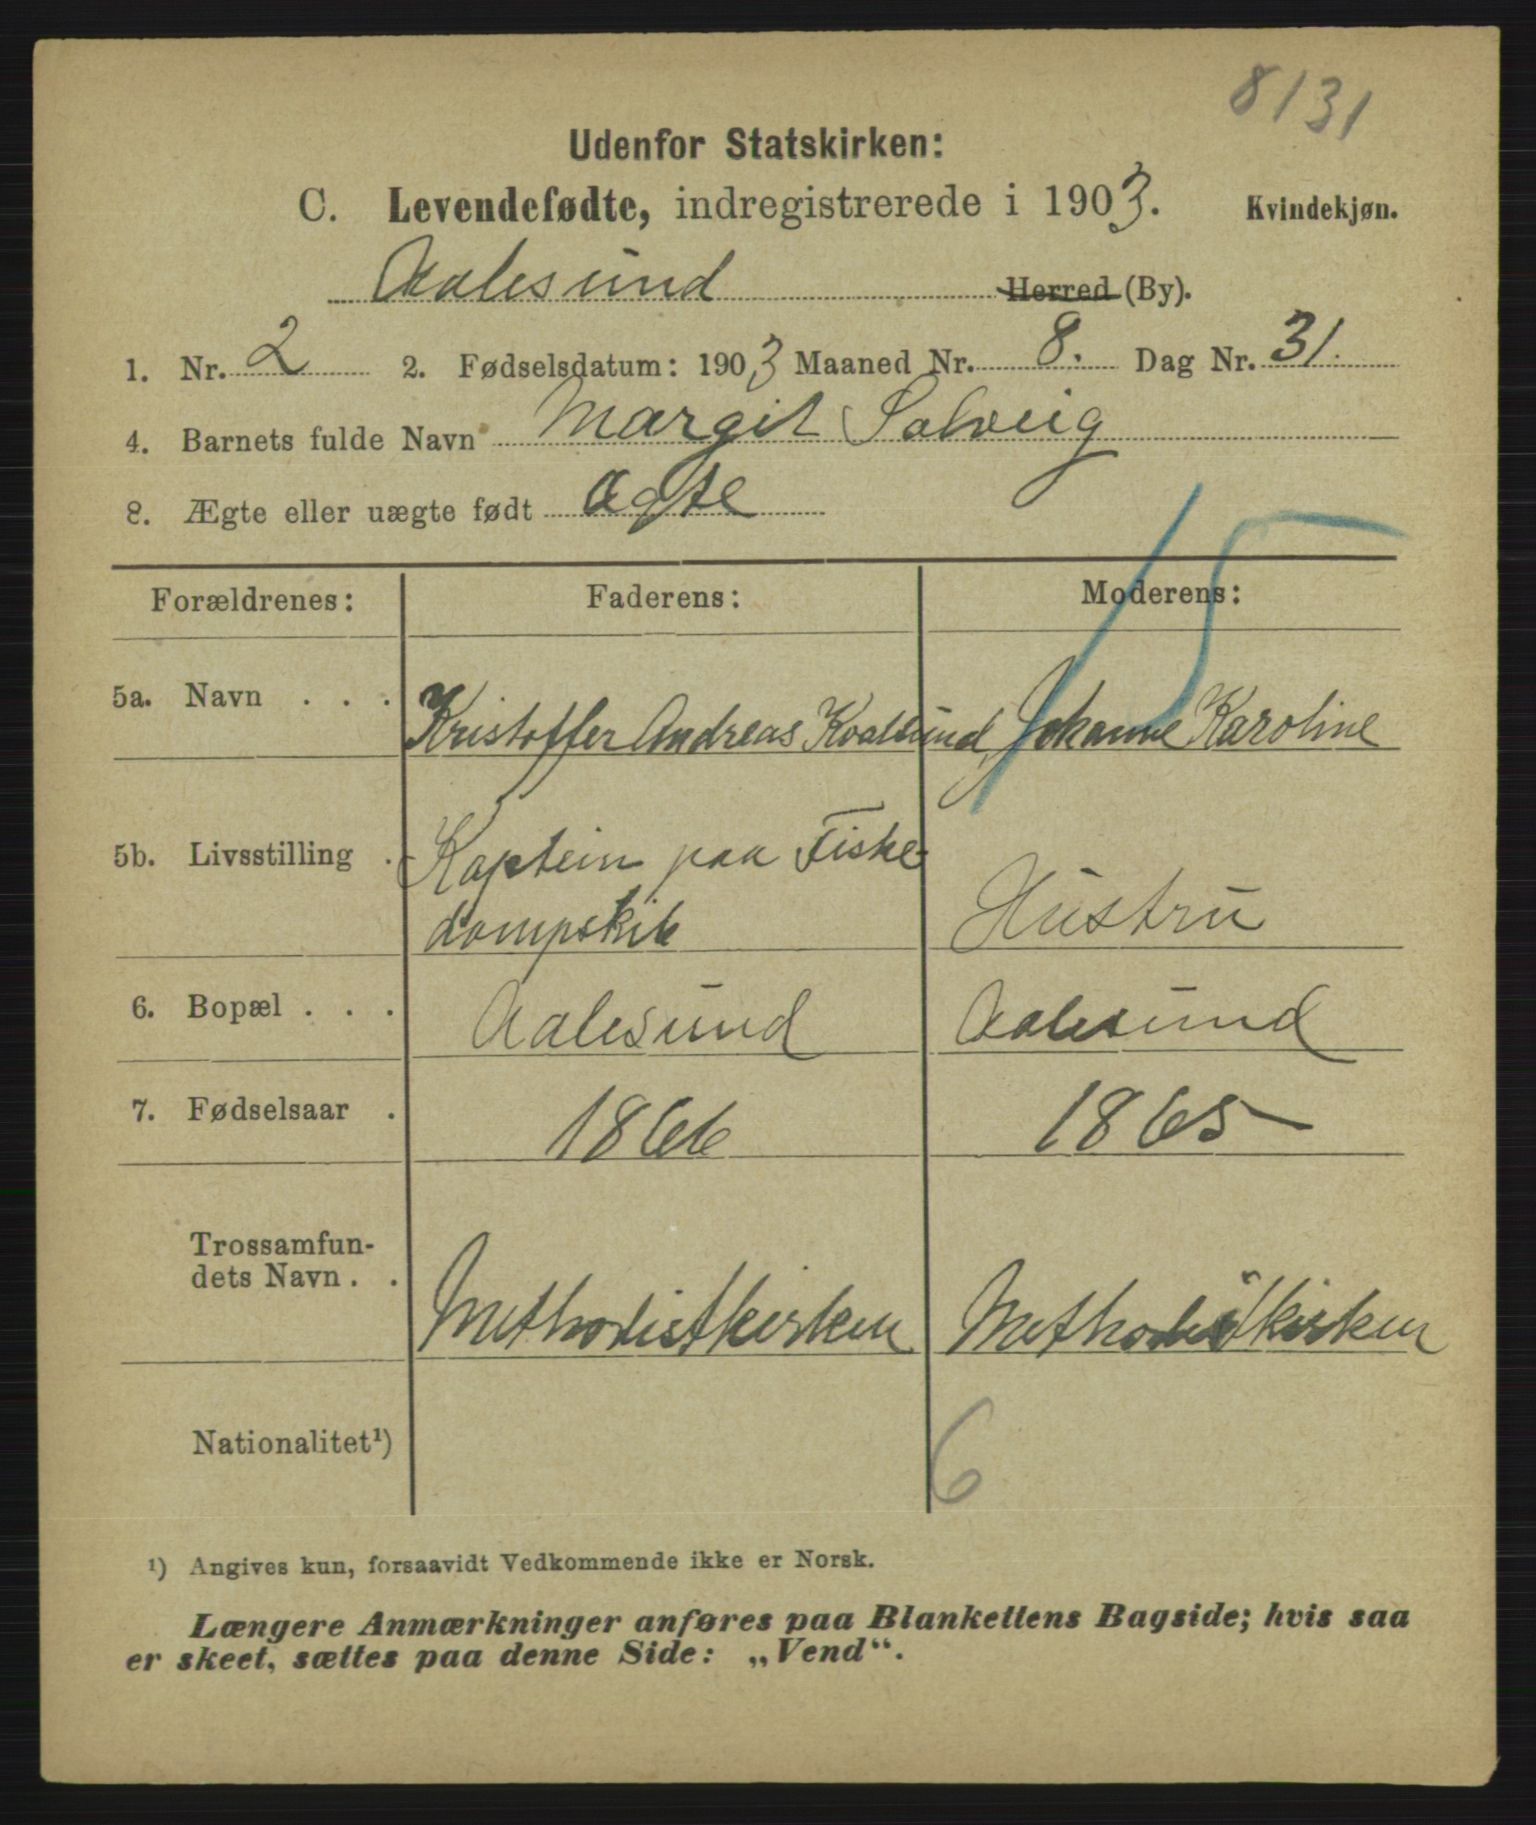 8131
Udenfor Statskirken:
C. Levendefødte, indregistrerede i 1903. Kvindekjøn.
Aalesund Herred (By).
1. Nr. 2 2. Fødselsdatum: 1903 Maaned Nr. 8. Dag Nr. 31.
4. Barnets fulde Navn Margit Solveig
8. Ægte eller uægte født Ægte
15
Forældrenes: Faderens: Moderens:
5a. Navn . . . Kristoffer Andreas Kvalsund, Johanne Karoline
5b. Livsstilling . Kaptein paa Fiske-
dampskib Hustru
6. Bopæl . . . Aalesund Aalesund
7. Fødselsaar . 1866 1865
Trossamfun-
dets Navn . . Methodistkirken Methodistkirken
Nationalitet¹)
6
¹) Angives kun, forsaavidt Vedkommende ikke er Norsk.
Længere Anmærkninger anføres paa Blankettens Bagside; hvis saa
er skeet, sættes paa denne Side: „Vend“.